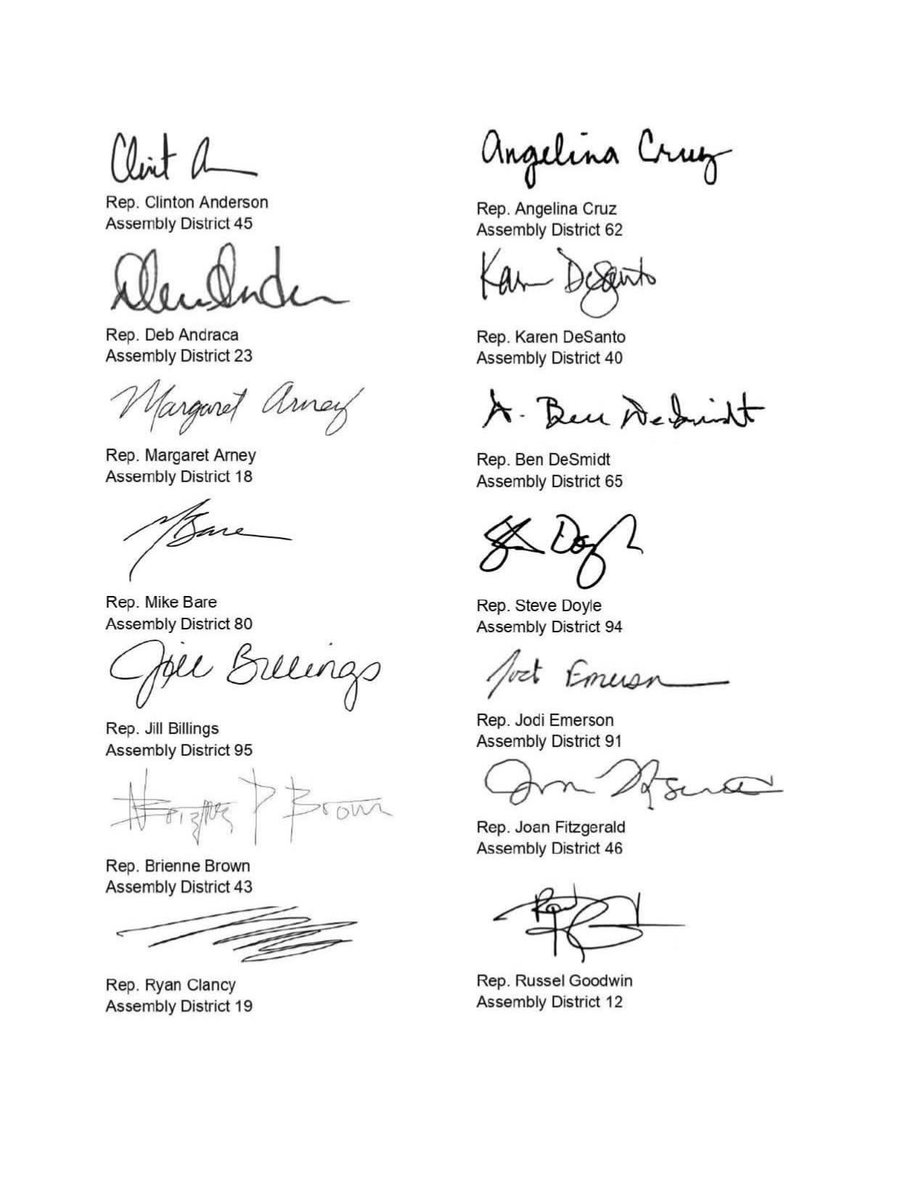 Clint A
Rep. Clinton Anderson
Assembly District 45
Rep. Deb Andraca
Assembly District 23
Margaret Arney
Rep. Margaret Arney
Assembly District 18
M Bare
Rep. Mike Bare
Assembly District 80
Jill Billings
Rep. Jill Billings
Assembly District 95
P Brown
Rep. Brienne Brown
Assembly District 43
Rep. Ryan Clancy
Assembly District 19
Angelina Cruz
Rep. Angelina Cruz
Assembly District 62
Karen DeSanto
Rep. Karen DeSanto
Assembly District 40
A. Ben DeSmidt
Rep. Ben DeSmidt
Assembly District 65
Rep. Steve Doyle
Assembly District 94
Emerson
Rep. Jodi Emerson
Assembly District 91
Rep. Joan Fitzgerald
Assembly District 46
Rep. Russel Goodwin
Assembly District 12